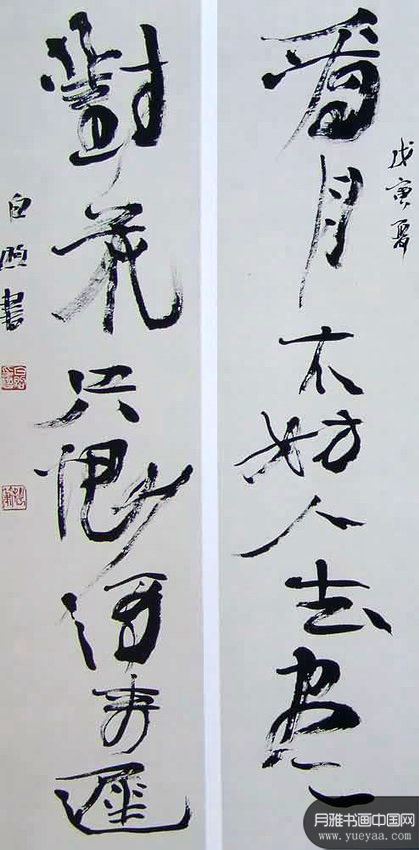 戊寅夏
看月不妨人去尽
對花只恨酒来遲
白煦書
月雅书画中国网
www.yueyaa.com